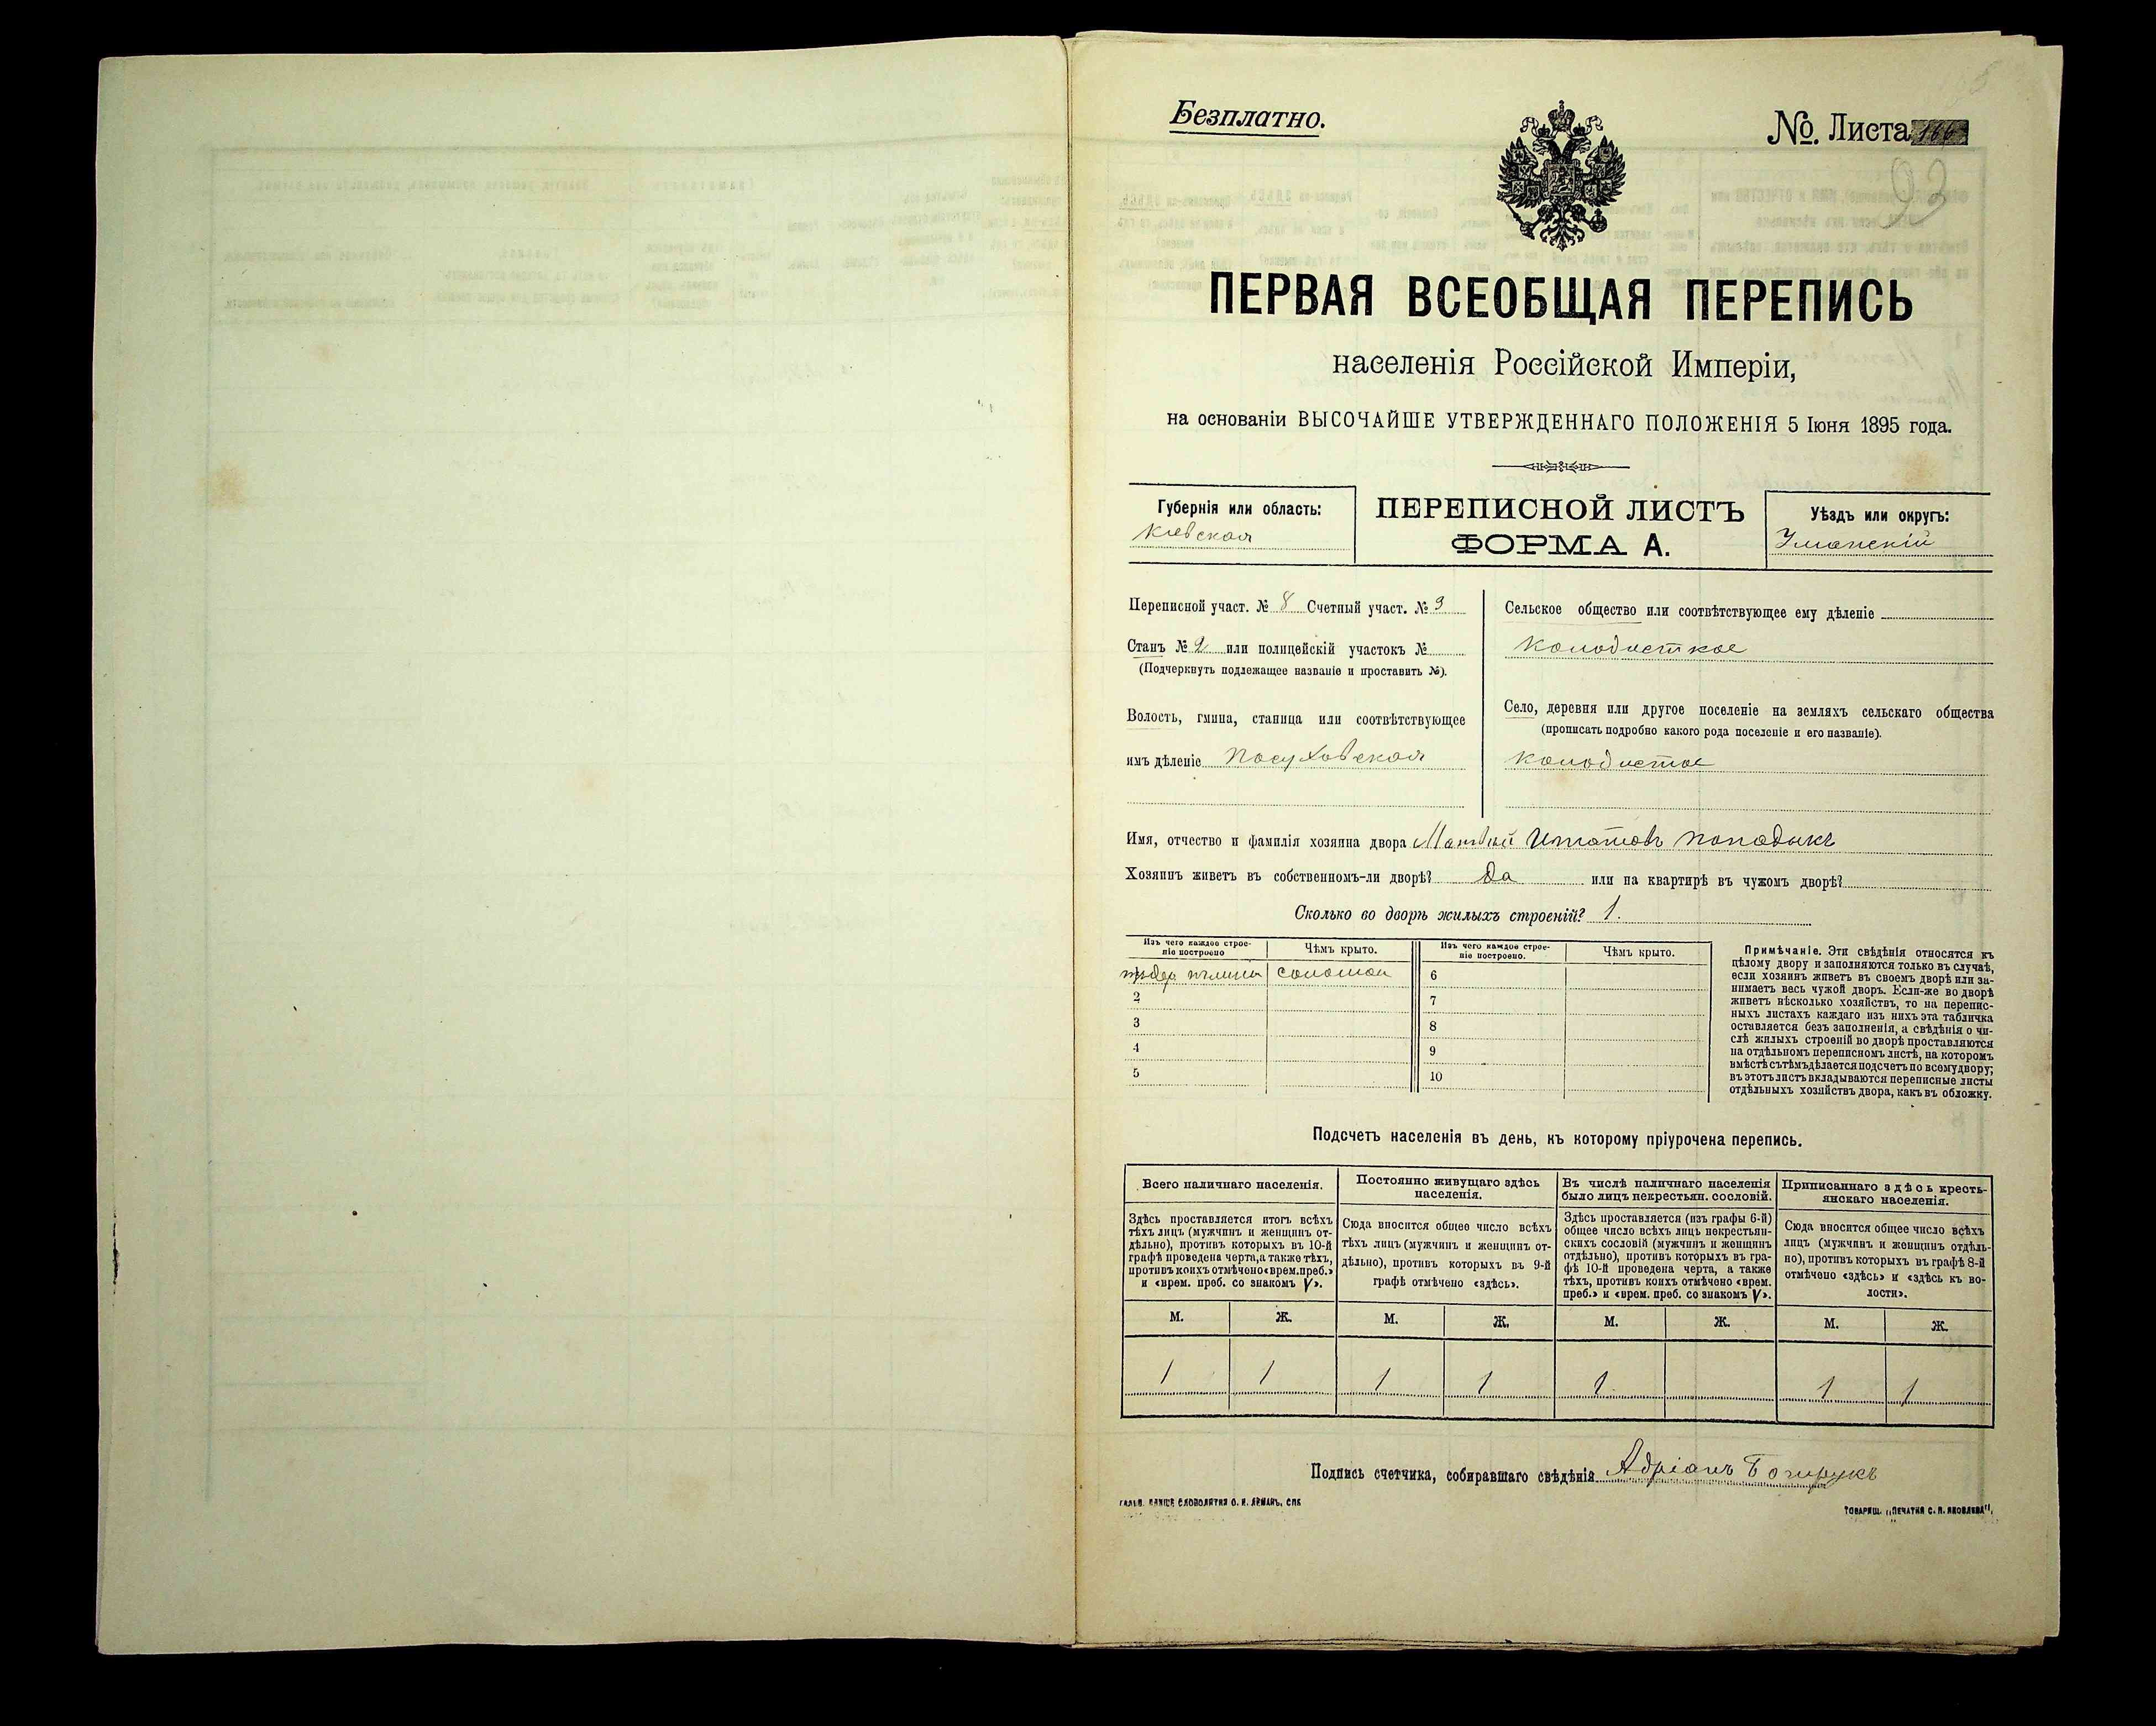 Безплатно.
№. Листа 166
93
ПЕРВАЯ ВСЕОБЩАЯ ПЕРЕПИСЬ
населенія Россійской Имперіи,
на основаніи ВЫСОЧАЙШЕ УТВЕРЖДЕННАГО ПОЛОЖЕНІЯ 5 Іюня 1895 года.
Губернія или область:
Кіевская
ПЕРЕПИСНОЙ ЛИСТЪ
ФОРМА А.
Уѣздъ или округъ:
Уманскій
Переписной участ. № 8 Счетный участ. № 3
Станъ № 2 или полицейскій участокъ №
(Подчеркнуть подлежащее названіе и проставить №).
Волость, гмина, станица или соотвѣтствующее
имъ дѣленіе Посуховская
Сельское общество или соотвѣтствующее ему дѣленіе
Колодисткое
Село, деревня или другое поселеніе на земляхъ сельскаго общества
(прописать подробно какого рода поселеніе и его названіе).
Колодистое
Имя, отчество и фамилія хозяина двора Матвѣй Игнатовъ Пападыкъ
Хозяинъ живетъ въ собственномъ-ли дворѣ? Да или на квартирѣ въ чужомъ дворѣ?
Сколько во дворѣ жилыхъ строеній? 1.
Изъ чего каждое строе-
ніе построено
Чѣмъ крыто.
Изъ чего каждое строе-
ніе построено.
Чѣмъ крыто.
соломои
6
2
7
3
8
4
9
5
10
Примѣчаніе. Эти свѣдѣнія относятся къ
цѣлому двору и заполняются только въ случаѣ,
если хозяинъ живетъ въ своемъ дворѣ или за-
нимаетъ весь чужой дворъ. Если-же во дворѣ
живетъ нѣсколько хозяйствъ, то на перепис-
ныхъ листахъ каждаго изъ нихъ эта табличка
оставляется безъ заполненія, а свѣдѣнія о чи-
слѣ жилыхъ строеній во дворѣ проставляются
на отдѣльномъ переписномъ листѣ, на которомъ
вмѣстѣ съ тѣмъ дѣлается подсчетъ по всему двору;
въ этотъ листъ вкладываются переписные листы
отдѣльныхъ хозяйствъ двора, какъ въ обложку.
Подсчетъ населенія въ день, къ которому пріурочена перепись.
Всего наличнаго населенія.
Постоянно живущаго здѣсь
населенія.
Въ числѣ наличнаго населенія
было лицъ некрестьян. сословій.
Приписаннаго здѣсь кресть-
янскаго населенія.
Здѣсь проставляется итогъ всѣхъ
тѣхъ лицъ (мужчинъ и женщинъ от-
дѣльно), противъ которыхъ въ 10-й
графѣ проведена черта, а также тѣхъ,
противъ коихъ отмѣчено «врем. преб.»
и «врем. преб. со знакомъ V».
Сюда вносится общее число всѣхъ
тѣхъ лицъ (мужчинъ и женщинъ от-
дѣльно), противъ которыхъ въ 9-й
графѣ отмѣчено «здѣсь».
Здѣсь проставляется (изъ графы 6-й)
общее число всѣхъ лицъ некрестьян-
скихъ сословій (мужчинъ и женщинъ
отдѣльно), противъ которыхъ въ гра-
фѣ 10-й проведена черта, а также
тѣхъ, противъ коихъ отмѣчено «врем.
преб.» и «врем. преб. со знакомъ V».
Сюда вносится общее число всѣхъ
лицъ (мужчинъ и женщинъ отдѣль-
но), противъ которыхъ въ графѣ 8-й
отмѣчено «здѣсь» и «здѣсь къ во-
лости».
М. Ж. М. Ж. М. Ж. М. Ж.
1 1 1 1 1 1 1
Подпись счетчика, собиравшаго свѣдѣнія Адріанъ
СЛОВОЛИТНЯ О. И. ЛЕМАНЪ, СПБ
ТОВАРИЩ. „ПЕЧАТНЯ С. П. ЯКОВЛЕВА“.